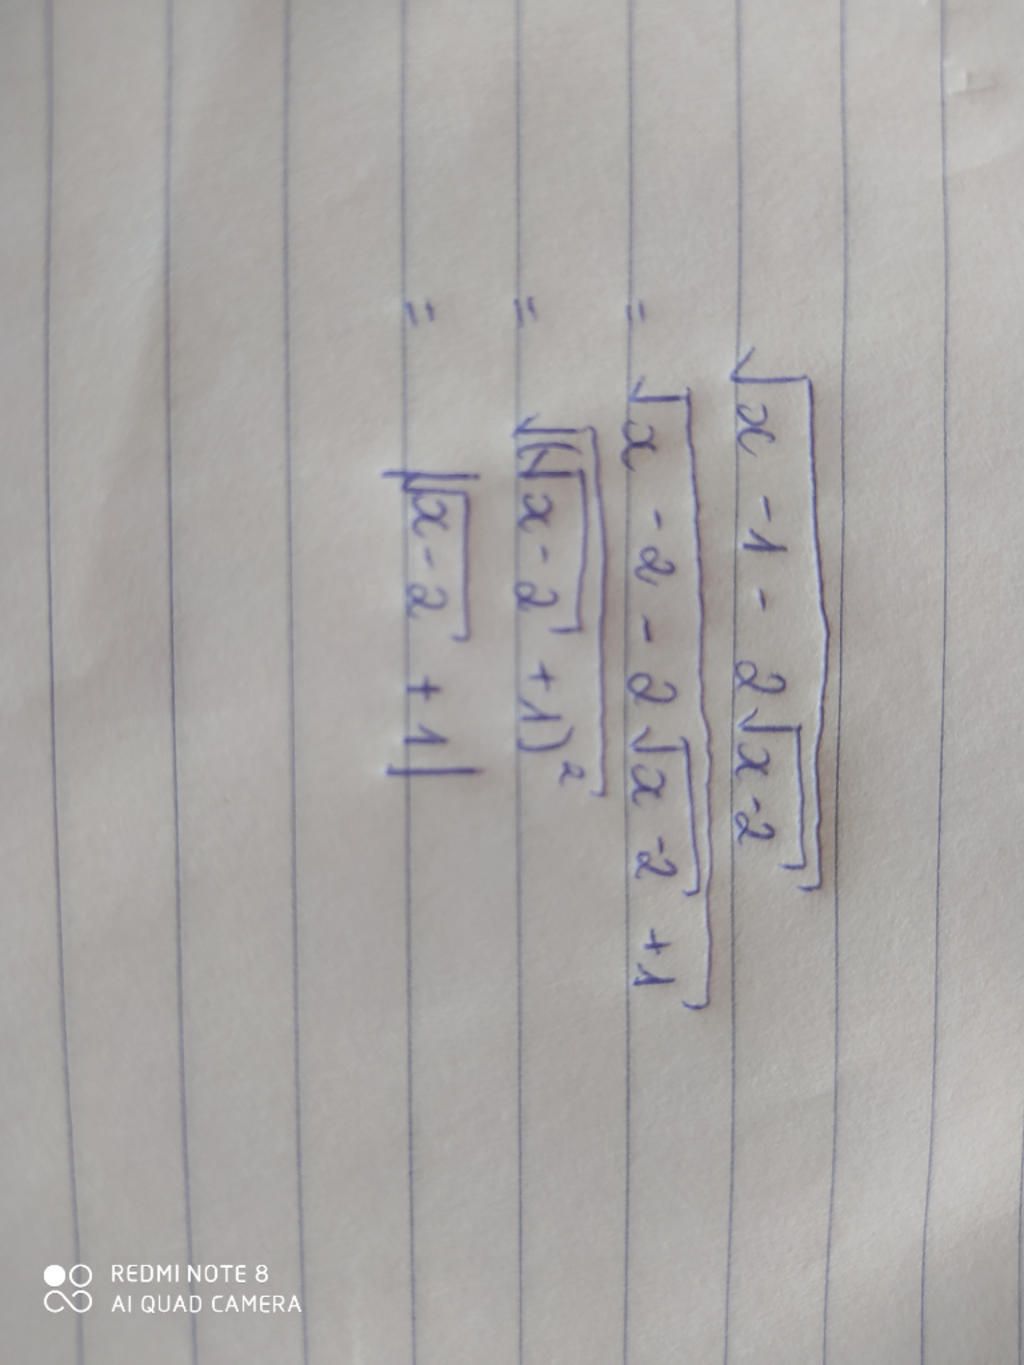 √(x - 1 - 2√(x - 2))
= √(x - 2 - 2√(x - 2) + 1)
= √((√(x - 2) + 1)²)
= |√(x - 2) + 1|
REDMI NOTE 8
AI QUAD CAMERA